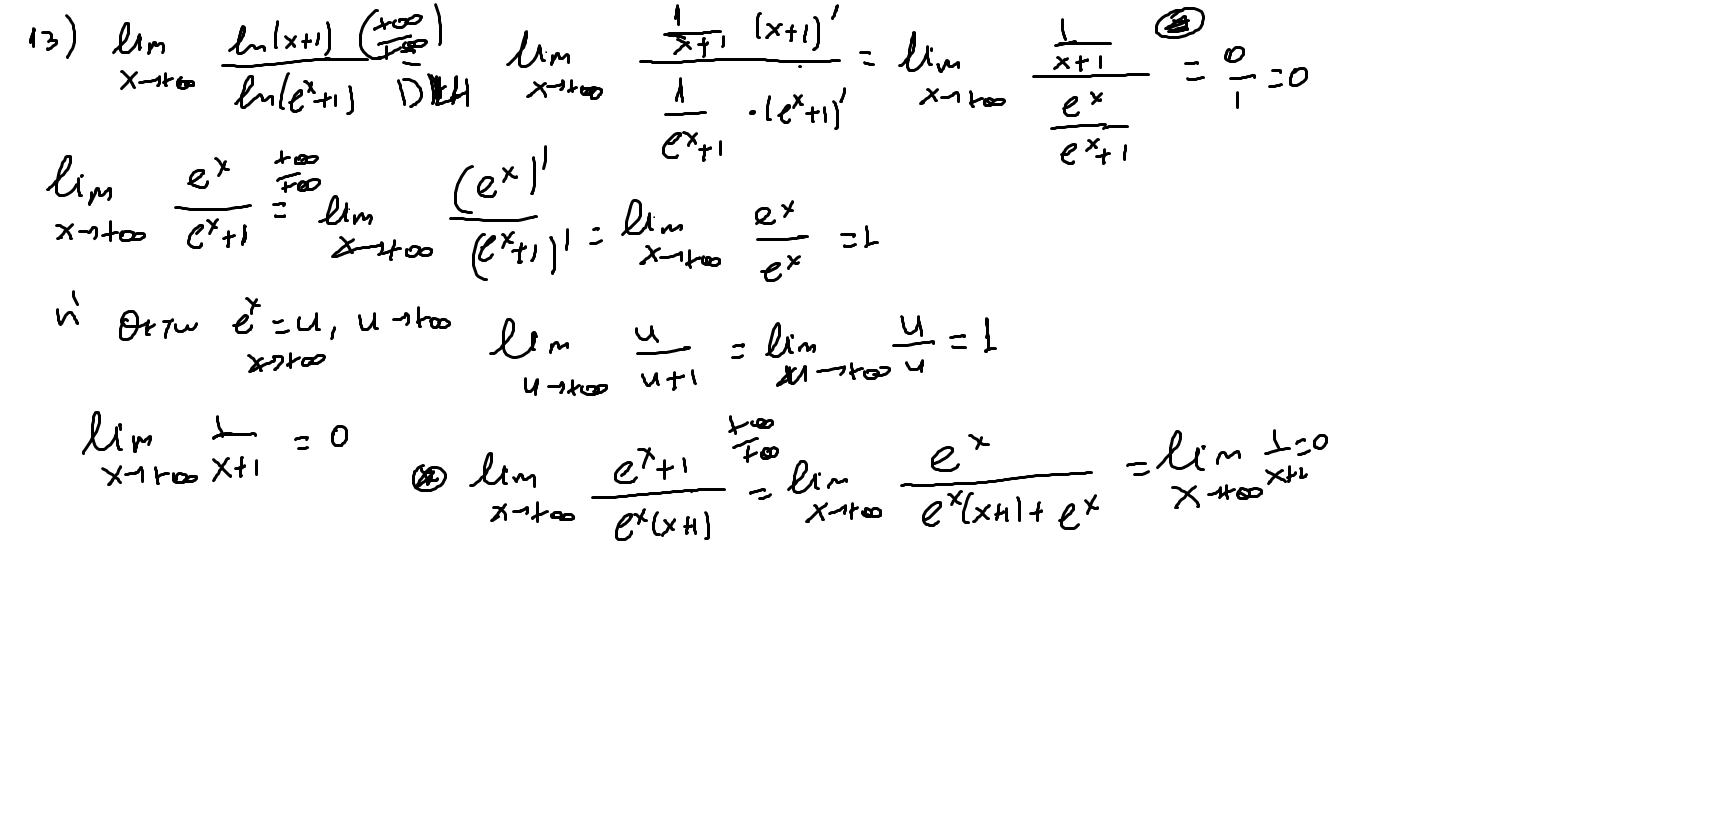 13) lim x→+∞ ln(x+1)/ln(e^x+1) (+∞/+∞) = DLH lim x→+∞ (1/(x+1) (x+1)')/(1/(e^x+1) · (e^x+1)') = lim x→+∞ (1/(x+1))/(e^x/(e^x+1)) = 0/1 = 0
lim x→+∞ e^x/(e^x+1) +∞/+∞ = lim x→+∞ (e^x)'/(e^x+1)' = lim x→+∞ e^x/e^x = 1
ή θετω e^x = u, x→+∞ u→+∞ lim u→+∞ u/(u+1) = lim u→+∞ u/u = 1
lim x→+∞ 1/(x+1) = 0
lim x→+∞ (e^x+1)/(e^x(x+1)) +∞/+∞ = lim x→+∞ e^x/(e^x(x+1)+e^x) = lim x→+∞ 1/(x+2) = 0